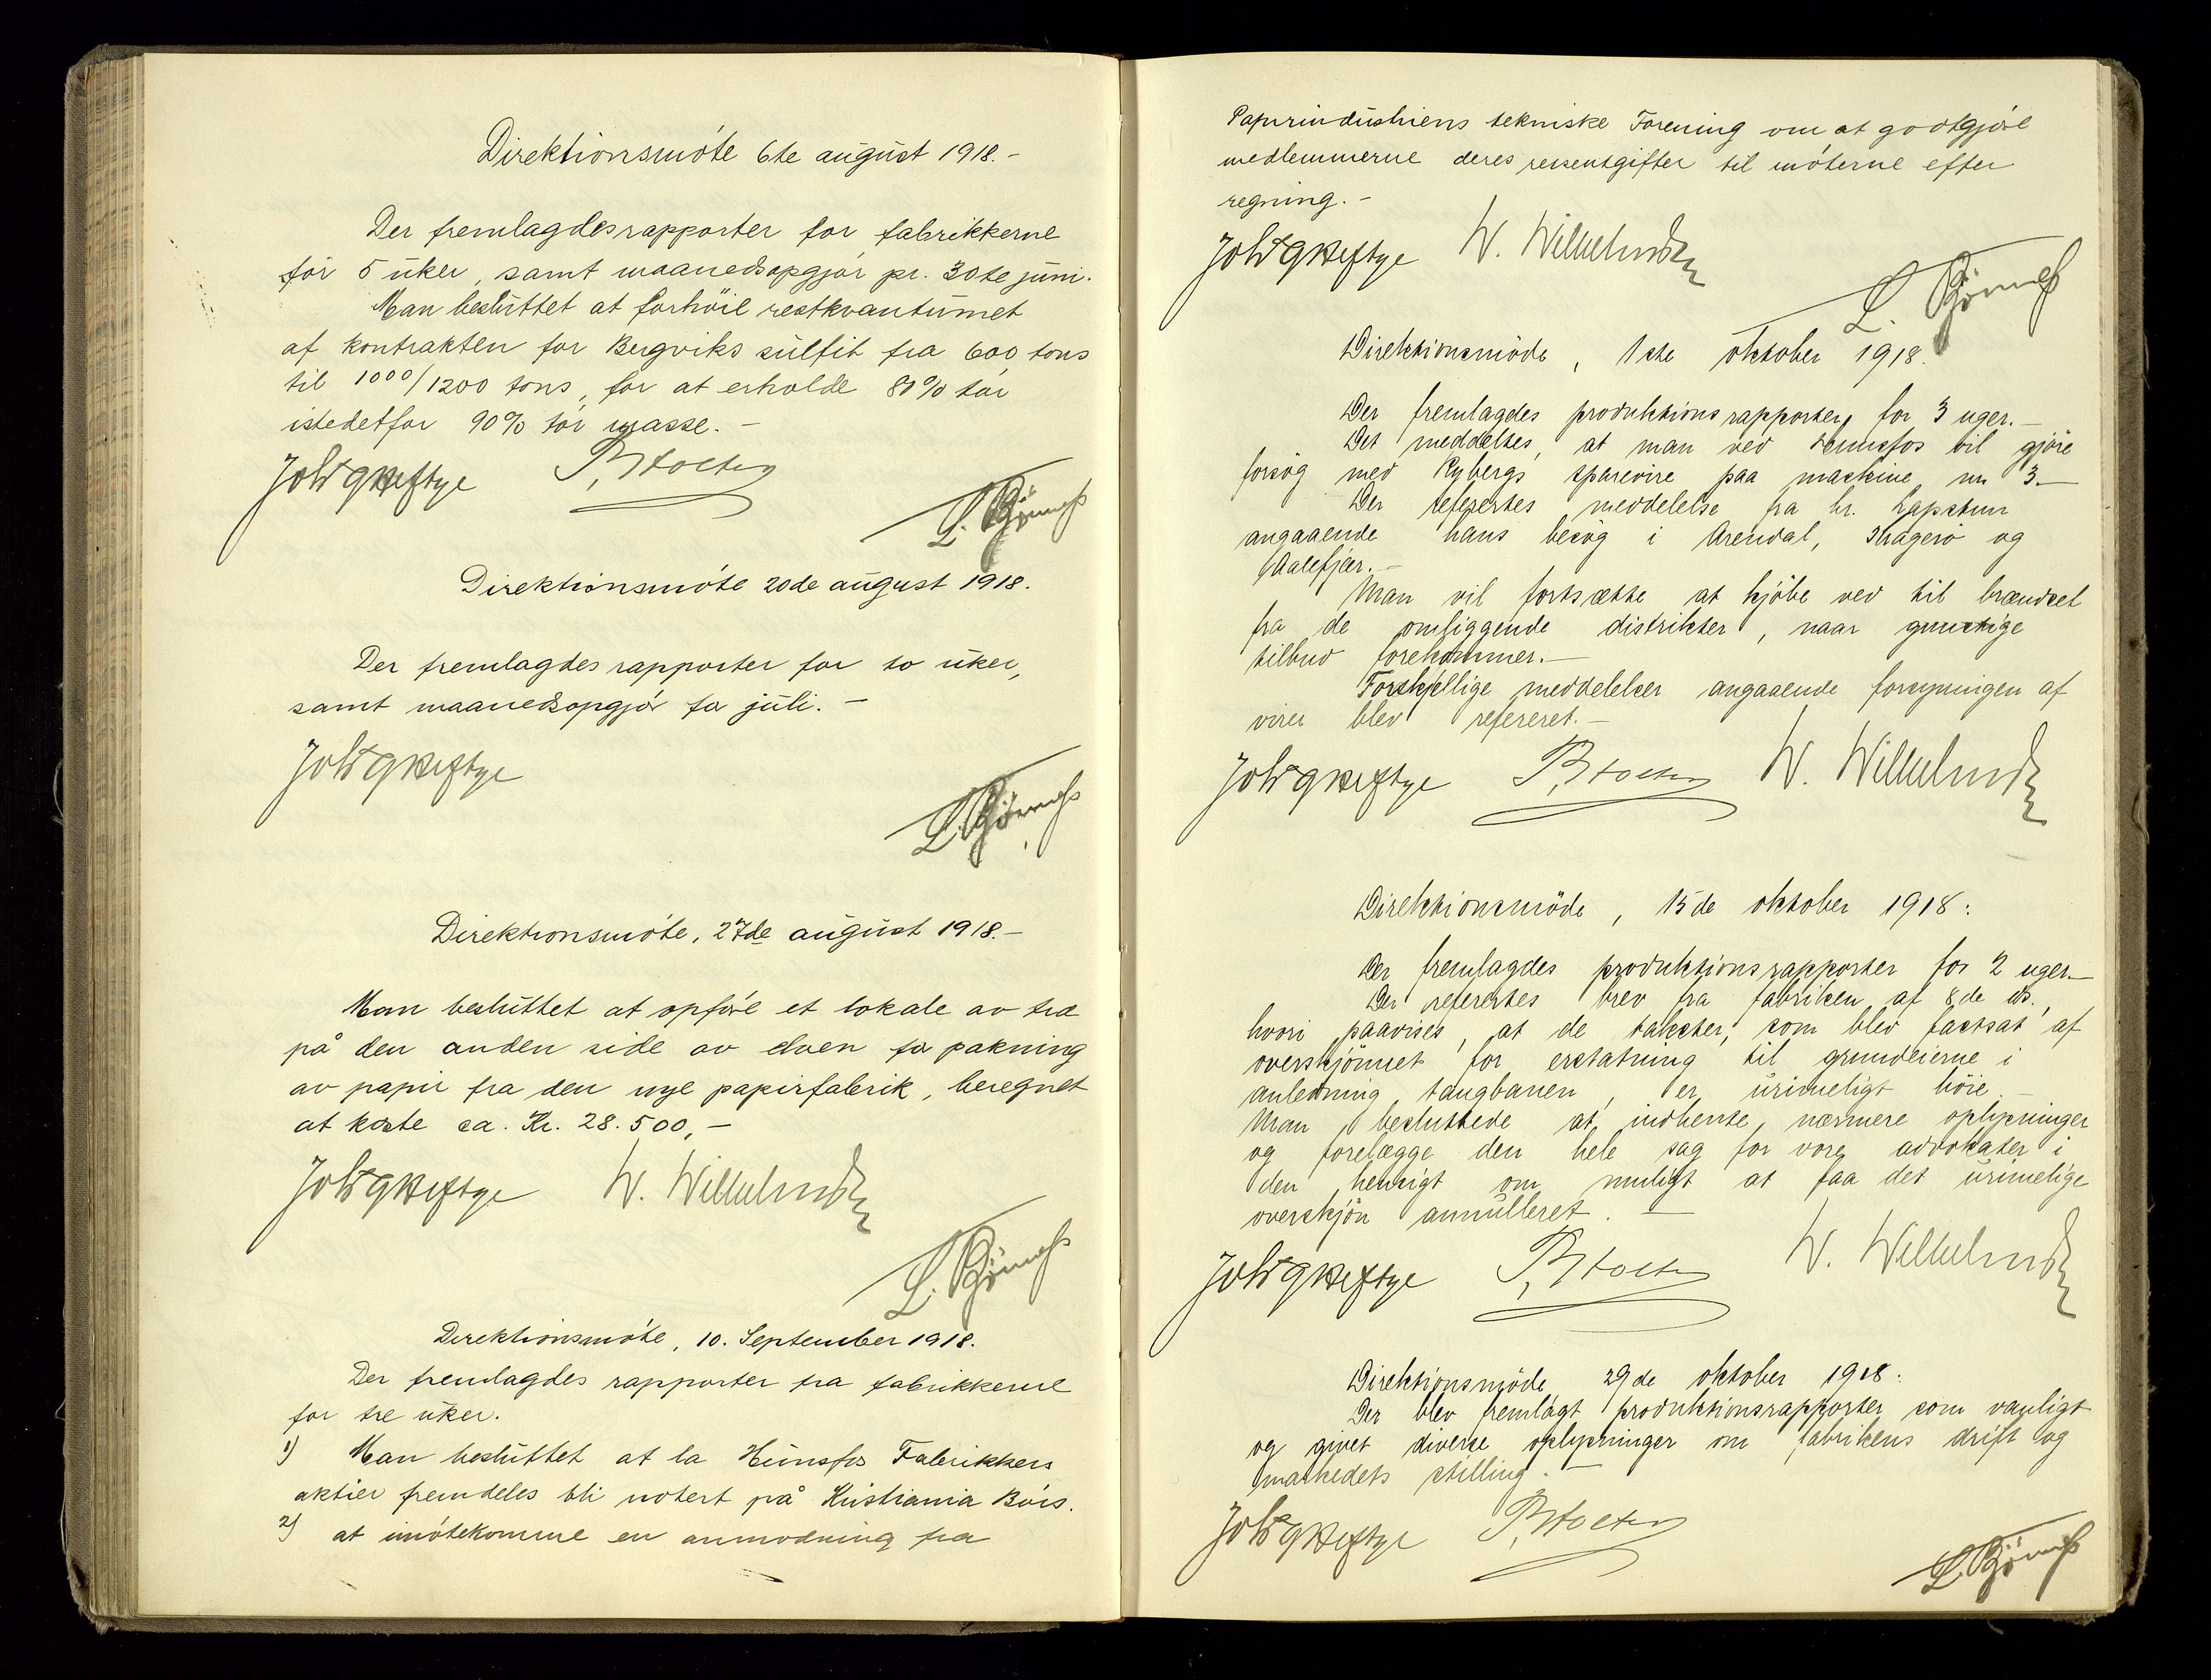 Direktionsmöte 6te august 1918.-
Der fremlagdes rapporter for fabrikkerne
for 5 uker, samt maanedsopgjör pr. 30te juni.
Man besluttet at forhöie restkvantumet
af kontrakten for Bergviks sulfit fra 600 tons
til 1000/1200 tons, for at erholde 80% tör
istedetfor 90% tör masse. -
Joh G Heftye P, Stoltz
L.
Direktionsmöte 20de august 1918.
Der fremlagdes rapporter for to uker,
samt maanedsopgjör for juli. -
Joh G Heftye
L.
Direktionsmöte, 27de august 1918.-
Man besluttet at opföre et lokale av træ
på den anden side av elven for pakning
av papir fra den nye papirfabrik, beregnet
at koste ca. Kr. 28.500,-
Joh G Heftye W. Wilhelmsen
L.
Direktionsmöte, 10. September 1918.
Der fremlagdes rapporter fra fabrikkerne
for tre uker.
1) Man besluttet at la Hunsfos Fabrikkers
aktier fremdeles bli notert på Kristiania Börs.
2) at imötekomme en anmodning fra
Papirindustriens tekniske Forening om at godtgjöre
medlemmerne deres reiseutgifter til möterne efter
regning. -
Joh G Heftye W. Wilhelmsen
L.
Direktionsmöde, 1ste oktober 1918.
Der fremlagdes produktionsrapporter for 3 uger.-
Det meddeltes, at man ved Hunsfos vil gjöre
forsög med Rybergs sparevire paa maskine nr 3.-
Der refertes meddelelse fra hr. Lapstun
angaaende hans besög i Arendal, Kragerö og
Aalefjær.-
Man vil fortsætte at kjöbe ved til brændsel
fra de omliggende distrikter, naar gunstige
tilbud forekommer.-
Forskjellige meddelelser angaaende forsyningen af
virer blev refereret.-
Joh G Heftye P, Stoltz W. Wilhelmsen
Direktionsmöde, 15de oktober 1918:
Der fremlagdes produktionsrapporter for 2 uger.-
Der refertes brev fra fabriken af 8de ds.,
hvori paavises, at de takster, som blev fastsat af
overskjönnet for erstatning til grundeierne i
anledning taugbanen, er urimeligt höie.-
Man besluttede at indhente nærmere oplysninger
og forelægge den hele sag for vore advokater i
den hensigt om muligt at faa det urimelige
overskjön annulleret. -
Joh G Heftye P, Stoltz W. Wilhelmsen
Direktionsmöde 29de oktober 1918:
Der blev fremlagt produktionsrapporter som vanligt
og givet diverse oplysninger om fabrikens drift og
markedets stilling. -
Joh G Heftye P, Stoltz
L.